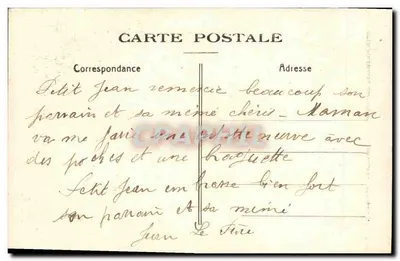 CARTE POSTALE
Correspondance
Adresse
Petit Jean remercie beaucoup son
parrain et sa mémé chéris - Maman
va me faire une neuve avec
des poches et une braguette
Petit Jean embrasse bien fort
son parrain et sa mémé
Jean Le